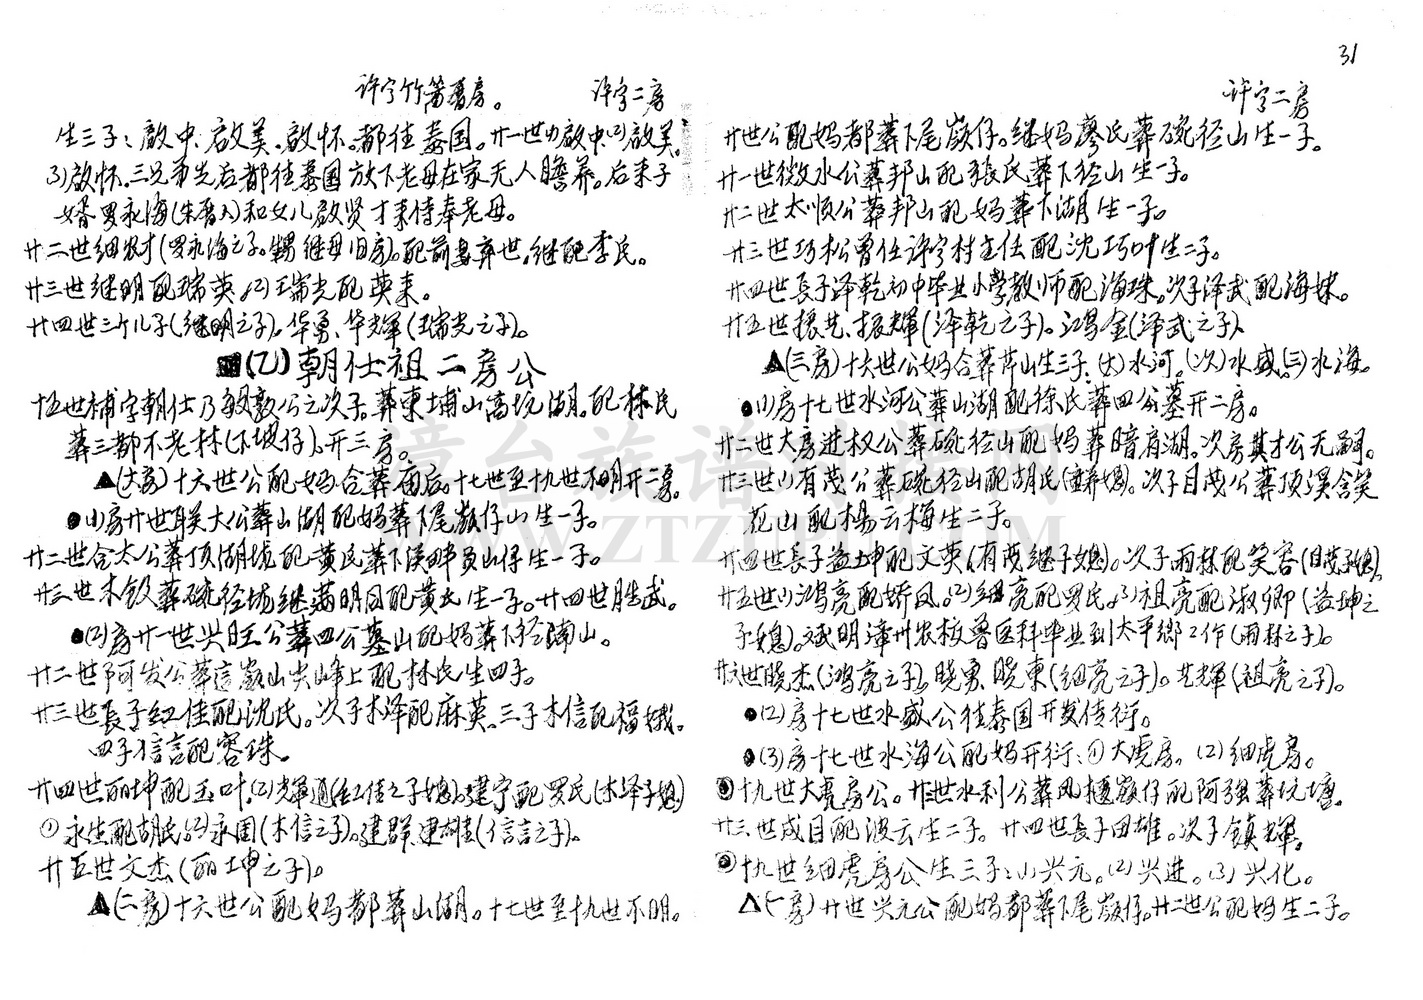 31
许字竹篱旧房。 许字二房
生三子:啟中、啟美、啟怀。都往泰国。廿一世(1)啟中、(2)啟美。
3)啟怀。三兄弟先后都往泰国放下老母在家无人贍养。后来子
婿罗永海(朱厝人)和女儿啟贤才来侍奉老母。
廿二世细农才(罗永海之子。甥继母旧房)。配前妻弃世,继配李氏。
廿三世继明配瑞英。(2)瑞光配英来。
廿四世三个儿子(继明之子)。华勇、华辉(瑞光之子)。
(乙)朝仕祖二房公
十五世補字朝仕乃毅敦公之次子。葬東埔山高坑湖。配林氏
葬三都不老林(下坡仔)、开三房。
▲(大房)十六世公配妈合葬庙后。十七世至十九世不明开二房。
●(1)房廿世联大公葬山湖配妈葬下尾嶺仔山生一子。
廿二世合太公葬顶湖垅配黄氏葬下溪畔员山仔生一子。
廿三世木钗葬硫径垅继满明囯配黄氏生一子。廿四世胜武。
●(2)房廿一世兴旺公葬四公墓山配妈葬下径陇山。
廿二世阿发公葬這嶺山尖峰上配林氏生四子。
廿三世長子红佳配沈氏。次子木泽配麻英。三子木信配福娥。
四子信言配容珠。
廿四世丽坤配玉叶。(2)光輝通(红佳之子媳)。建宁配罗氏(木泽子媳)
①永生配胡氏。(2)永国(木信之子)。建群建雄(信言之子)。
廿五世文杰(丽坤之子)。
▲(二房)十六世公配妈都葬山湖。十七世至十九世不明。
许字二房
廿世公配妈都葬下尾嶺仔。继妈廖氏葬硫径山生一子。
廿一世微水公葬邦山配張氏葬下径山生一子。
廿二世太顺公葬邦山配妈葬下湖生一子。
廿三世巧松曾任许字村主任配沈巧叶生二子。
廿四世長子泽乾初中毕业小学教师配海珠。次子泽武配海妹。
廿五世振艺、振輝(泽乾之子)。鸿金(泽武之子)、
▲(三房)十六世公妈合葬芹山生三子:(大)水河。(次)水盛。(三)水海。
●(1)房十七世水河公葬山湖配徐氏葬四公墓开二房。
廿二世大房进权公葬硫径山配妈葬暗肩湖。次房其才公无嗣。
廿三世(1)有茂公葬硫径山配胡氏(童养媳)。次子目茂公葬顶溪含笑
花山配楊云梅生二子。
廿四世長子益坤配文英(有茂继子媳)。次子雨林配笑容(目茂子媳)。
廿五世(1)鸿亮配娇凤。(2)细亮配罗氏。(3)祖亮配淑卿(益坤之
子媳)。斌明漳州农校兽医科毕业到太平鄉工作(雨林之子)。
廿六世晓杰(鸿亮之子)。晓勇、晓東(细亮之子)。艺輝(祖亮之子)。
●(2)房十七世水盛公往泰国开发传衍。
●(3)房十七世水海公配妈开衍:①大虎房。(2)细虎房。
①十九世大虎房公。廿世水利公葬风櫃嶺仔配阿强葬坑塘。
廿三世成目配波云生二子。廿四世長子田雄。次子镇輝。
②十九世细虎房公生三子:(1)兴元。(2)兴进。(3)兴化。
△(一房)廿世兴元公配妈都葬下尾嶺仔。廿二世公配妈生二子。
漳台族谱对接网
WWW.ZTZUPU.COM